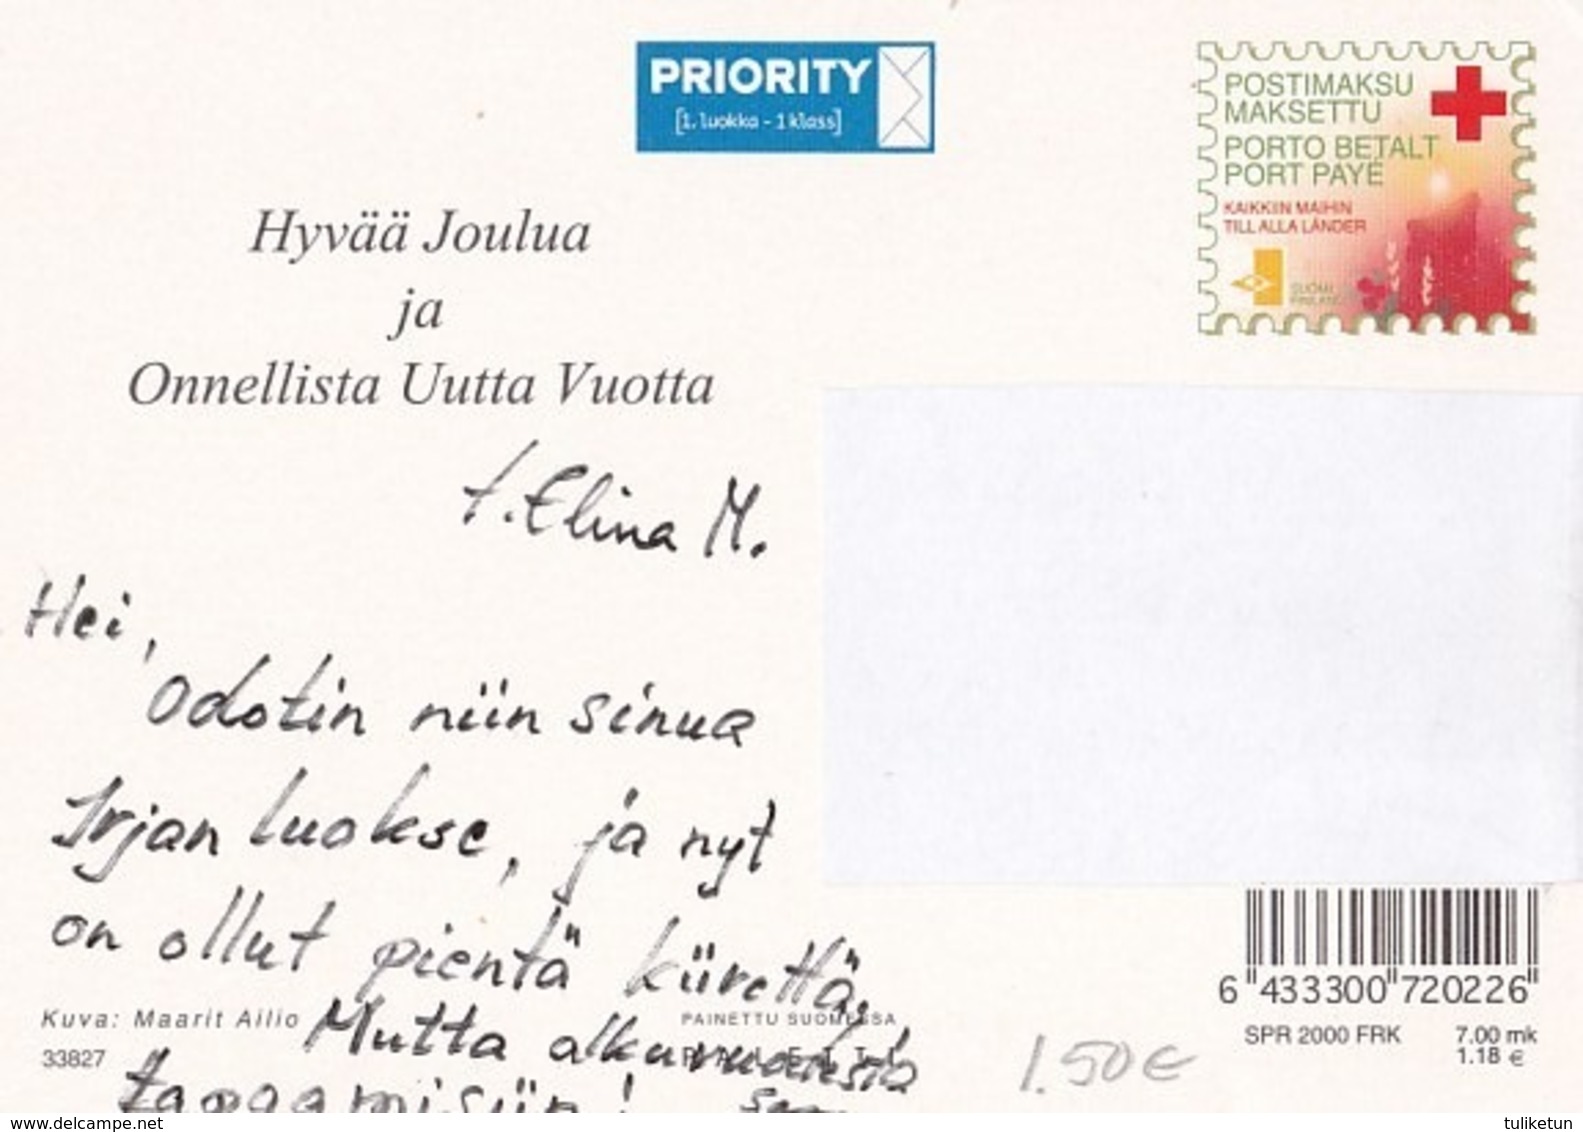 PRIORITY
[1. luokka - 1 klass]
POSTIMAKSU
MAKSETTU
PORTO BETALT
PORT PAYÉ
KAIKKIIN MAIHIN
TILL ALLA LÄNDER
SUOMI
FINLAND
Hyvää Joulua
ja
Onnellista Uutta Vuotta
t. Elina M.
Hei,
odotin niin sinua
Irjan luokse, ja nyt
on ollut pientä kiirettä.
Mutta alkuvuodesta
tapaamisiin!
Kuva: Maarit Ailio
33827
PAINETTU SUOMESSA
6 433300 720226
SPR 2000 FRK
7.00 mk
1.18 €
1.50€
www.delcampe.net
tuliketun